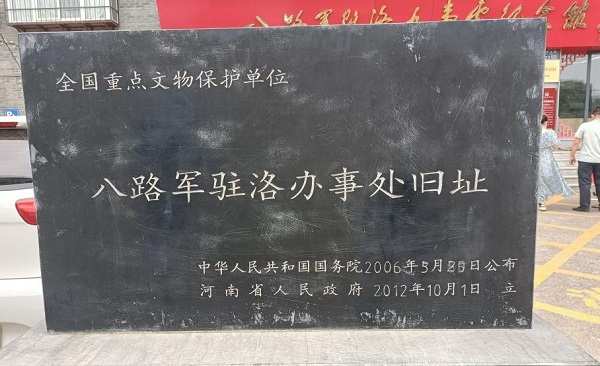 八路军驻洛办事处纪念馆
全国重点文物保护单位
八路军驻洛办事处旧址
中华人民共和国国务院2006年5月25日公布
河南省人民政府 2012年10月1日 立